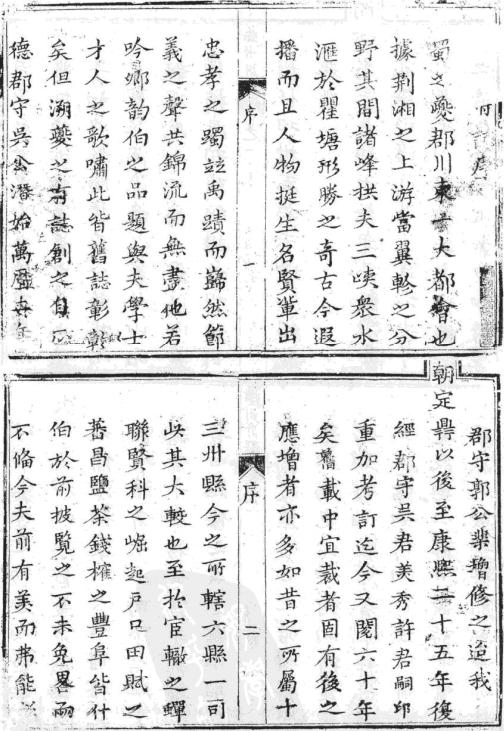 蜀之夔郡川東一大都會也
據荆湘之上游當翼軫之分
野其間諸峰拱夫三峽衆水
滙於瞿塘形勝之奇古今遐
播而且人物挺生名賢輩出
序
一
忠孝之躅並禹蹟而巋然節
義之聲共錦流而無盡他若
吟鄉韵伯之品題與夫學士
才人之歌嘯此皆舊誌彰彰
矣但溯夔之有誌創之自正
德郡守吳公潛始萬曆年
郡守郭公棐增修之迨我
朝定鼎以後至康熙二十五年復
經郡守吳君美秀許君嗣印
重加考訂迄今又閱六十年
矣舊載中宜裁者固有後之
應增者亦多如昔之所屬十
序
二
三州縣今之所轄六縣一司
此其大較也至於宦轍之蟬
聯賢科之崛起戶口田賦之
蕃昌鹽茶錢榷之豐阜皆什
伯於前披覽之下未免畧而
不備今夫前有美而弗能